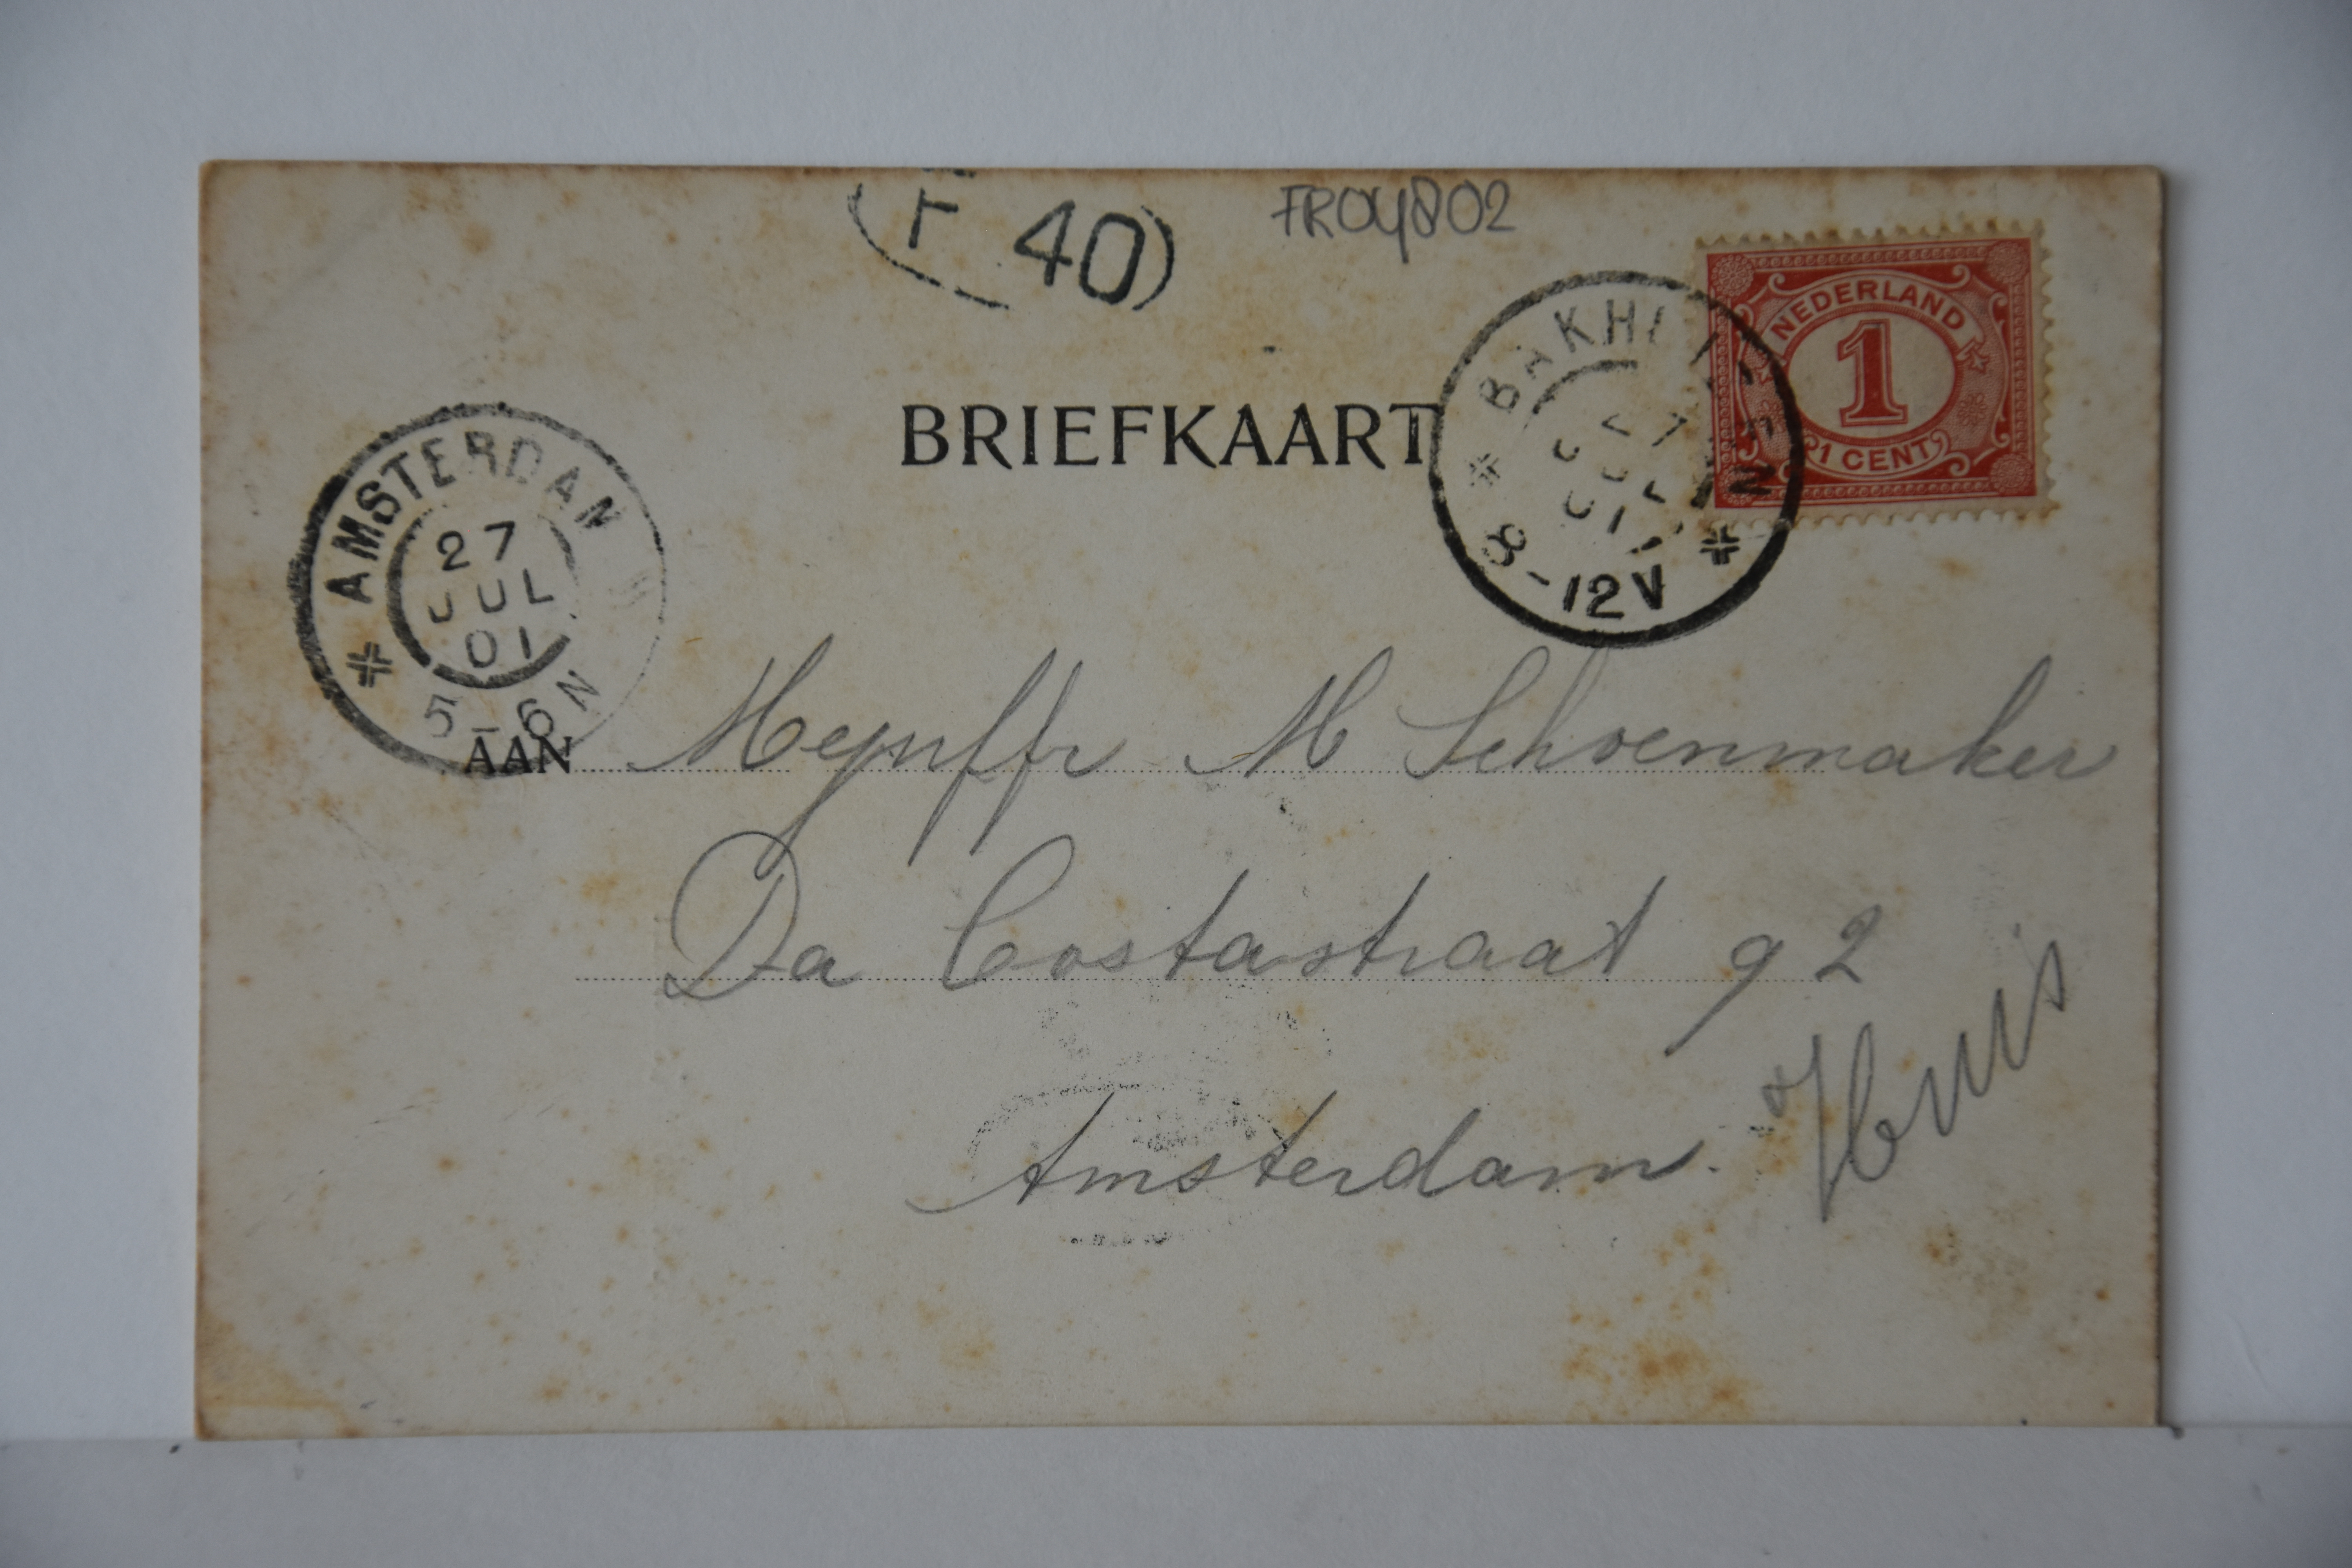 F 40
FR04802
NEDERLAND
1
1 CENT
BRIEFKAART
8-12V
AMSTERDAM
27
JUL
01
5-6N
AAN Mejuffr M Schoenmaker
Da Costastraat 92
Huis
Amsterdam.